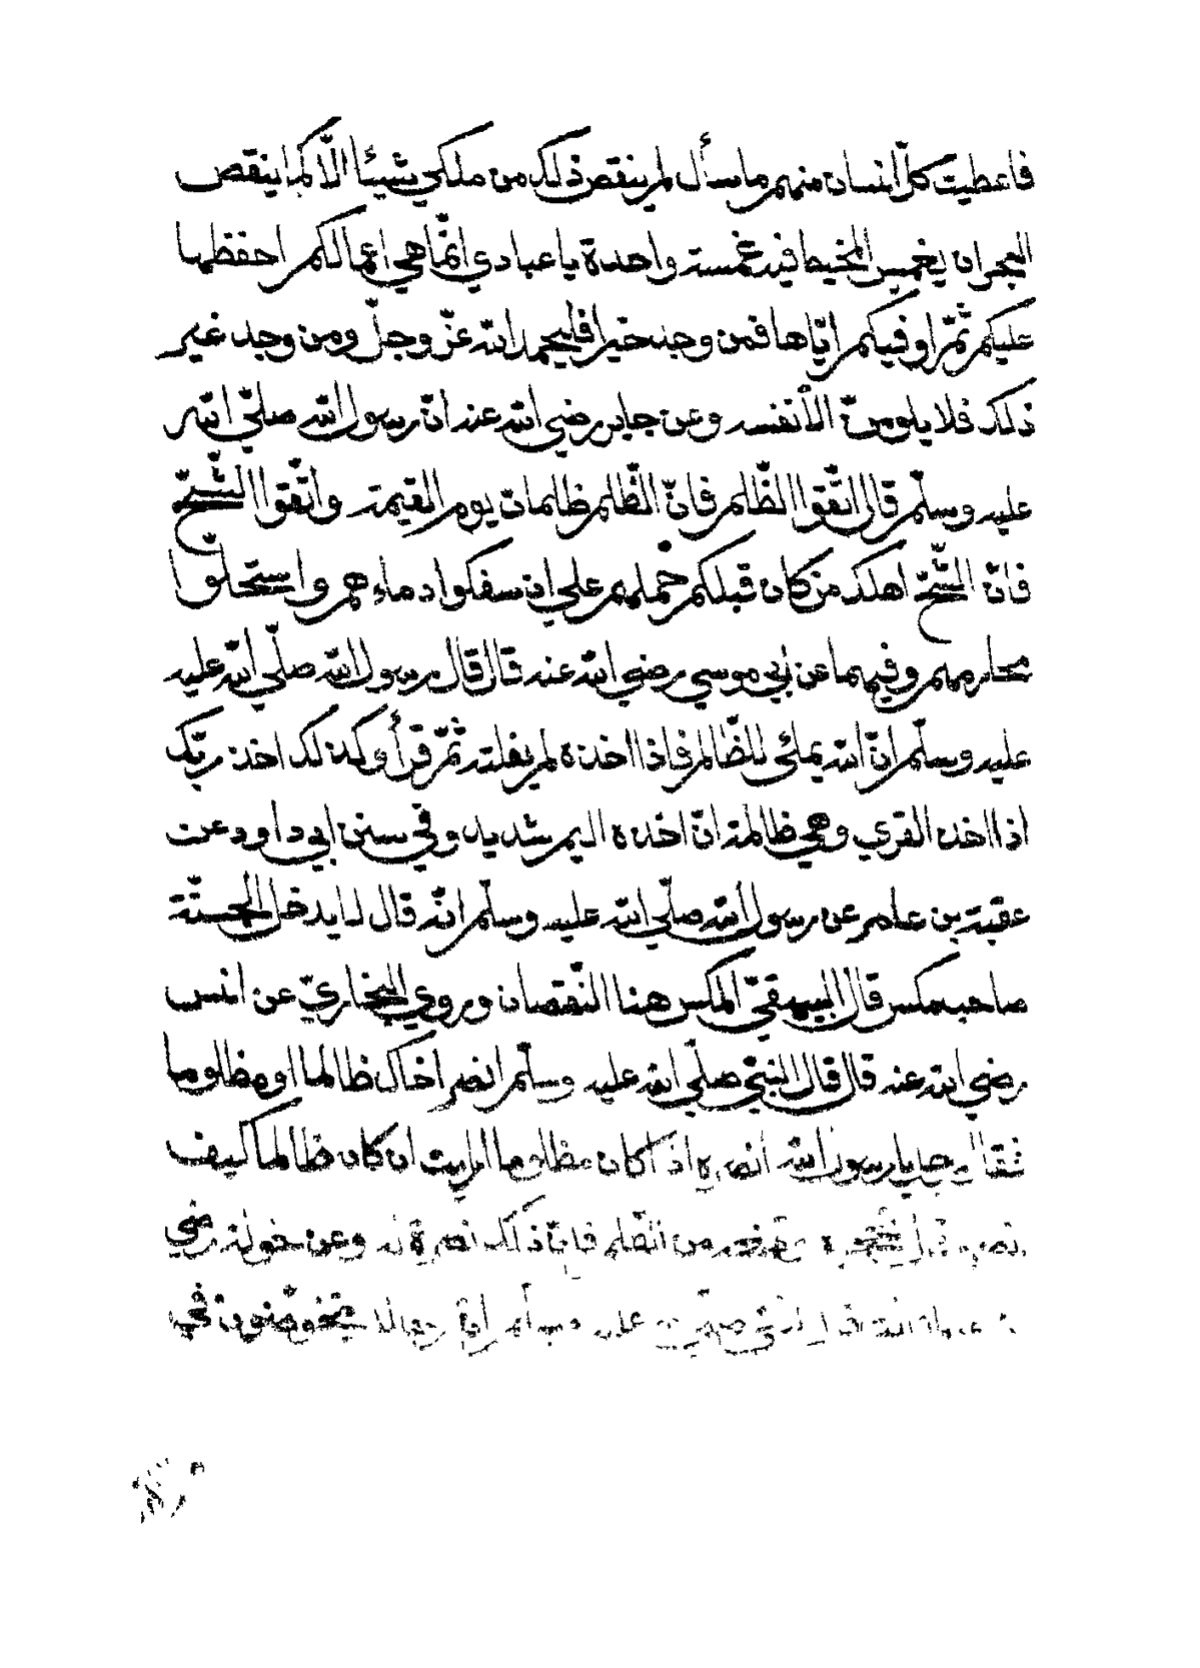 فاعطيت كلّ انسان منهم ما سأل لم ينقص ذلك من ملكي شيئا الّا كما ينقص
البحر ان يغمس المخيط فيه غمسة واحدة يا عبادي انّما هي اعمالكم احفظها
عليكم ثمّ اوفيكم ايّاها فمن وجد خيرا فليحمد الله عزّ وجلّ ومن وجد غير
ذلك فلا يلومنّ الّا نفسه وعن جابر رضي الله عنه انّ رسول الله صلّي الله
عليه وسلّم قال اتّقوا الظّلم فانّ الظّلم ظلمات يوم القيمة واتّقوا الشّحّ
فانّ الشّحّ اهلك من كان قبلكم حملهم علي ان سفكوا دماءهم واستحلّوا
محارمهم وفيهما عن ابي موسي رضي الله عنه قال قال رسول الله صلّي الله عليه
عليه وسلّم انّ الله يملئ للظّالم فاذا اخذه لم يفلته ثمّ قرأ وكذلك اخذ ربّك
اذا اخذ القري وهي ظالمة انّ اخذه اليم شديد وفي سنن ابي داود عن
عقبة بن عامر عن رسول الله صلّي الله عليه وسلّم انّه قال لا يدخل الجنّة
صاحب مكس قال البيهقيّ المكس هنا النّقصان وروي البخاريّ عن انس
رضي الله عنه قال قال النبيّ صلّي الله عليه وسلّم انصر اخاك ظالما او مظلوما
فقال رجل يا رسول الله أنصره اذا كان مظلوما ارايت ان كان ظالما كيف
انصره قال من الظّلم فانّ ذلك نصرة له وعن خولة رضي
الله قال صلّي عليه وسلّم انّ رجالا يتخوّضون في